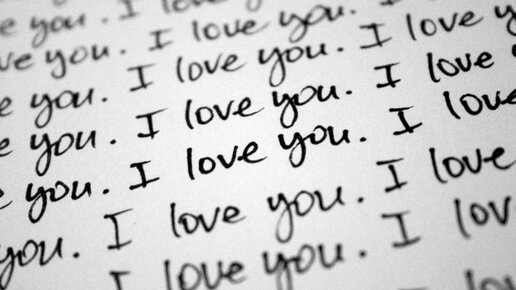 you. I love you.
ve you. I love you. I love
e you. I love you. I love y
e you. I love you. I love
e you. I love you. I love
you. I love you. I love
I love you. I lov